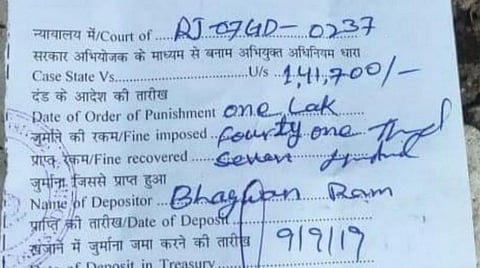 न्यायालय में/Court of ....RJ-07GD-0237
सरकार अभियोजक के माध्यम से बनाम अभियुक्त अधिनियम धारा
Case State Vs..............................U/s 1,41,700/-
दंड के आदेश की तारीख
Date of Order of Punishment one Lak
जुर्माने की रकम/Fine imposed fourty one
प्राप्त रकम/Fine recovered seven
जुर्माना जिससे प्राप्त हुआ
Name of Depositor ...Bhagwan Ram
प्राप्ति की तारीख/Date of Deposit
खजाने में जुर्माना जमा करने की तारीख 9/9/19
Date of Deposit in Treasury